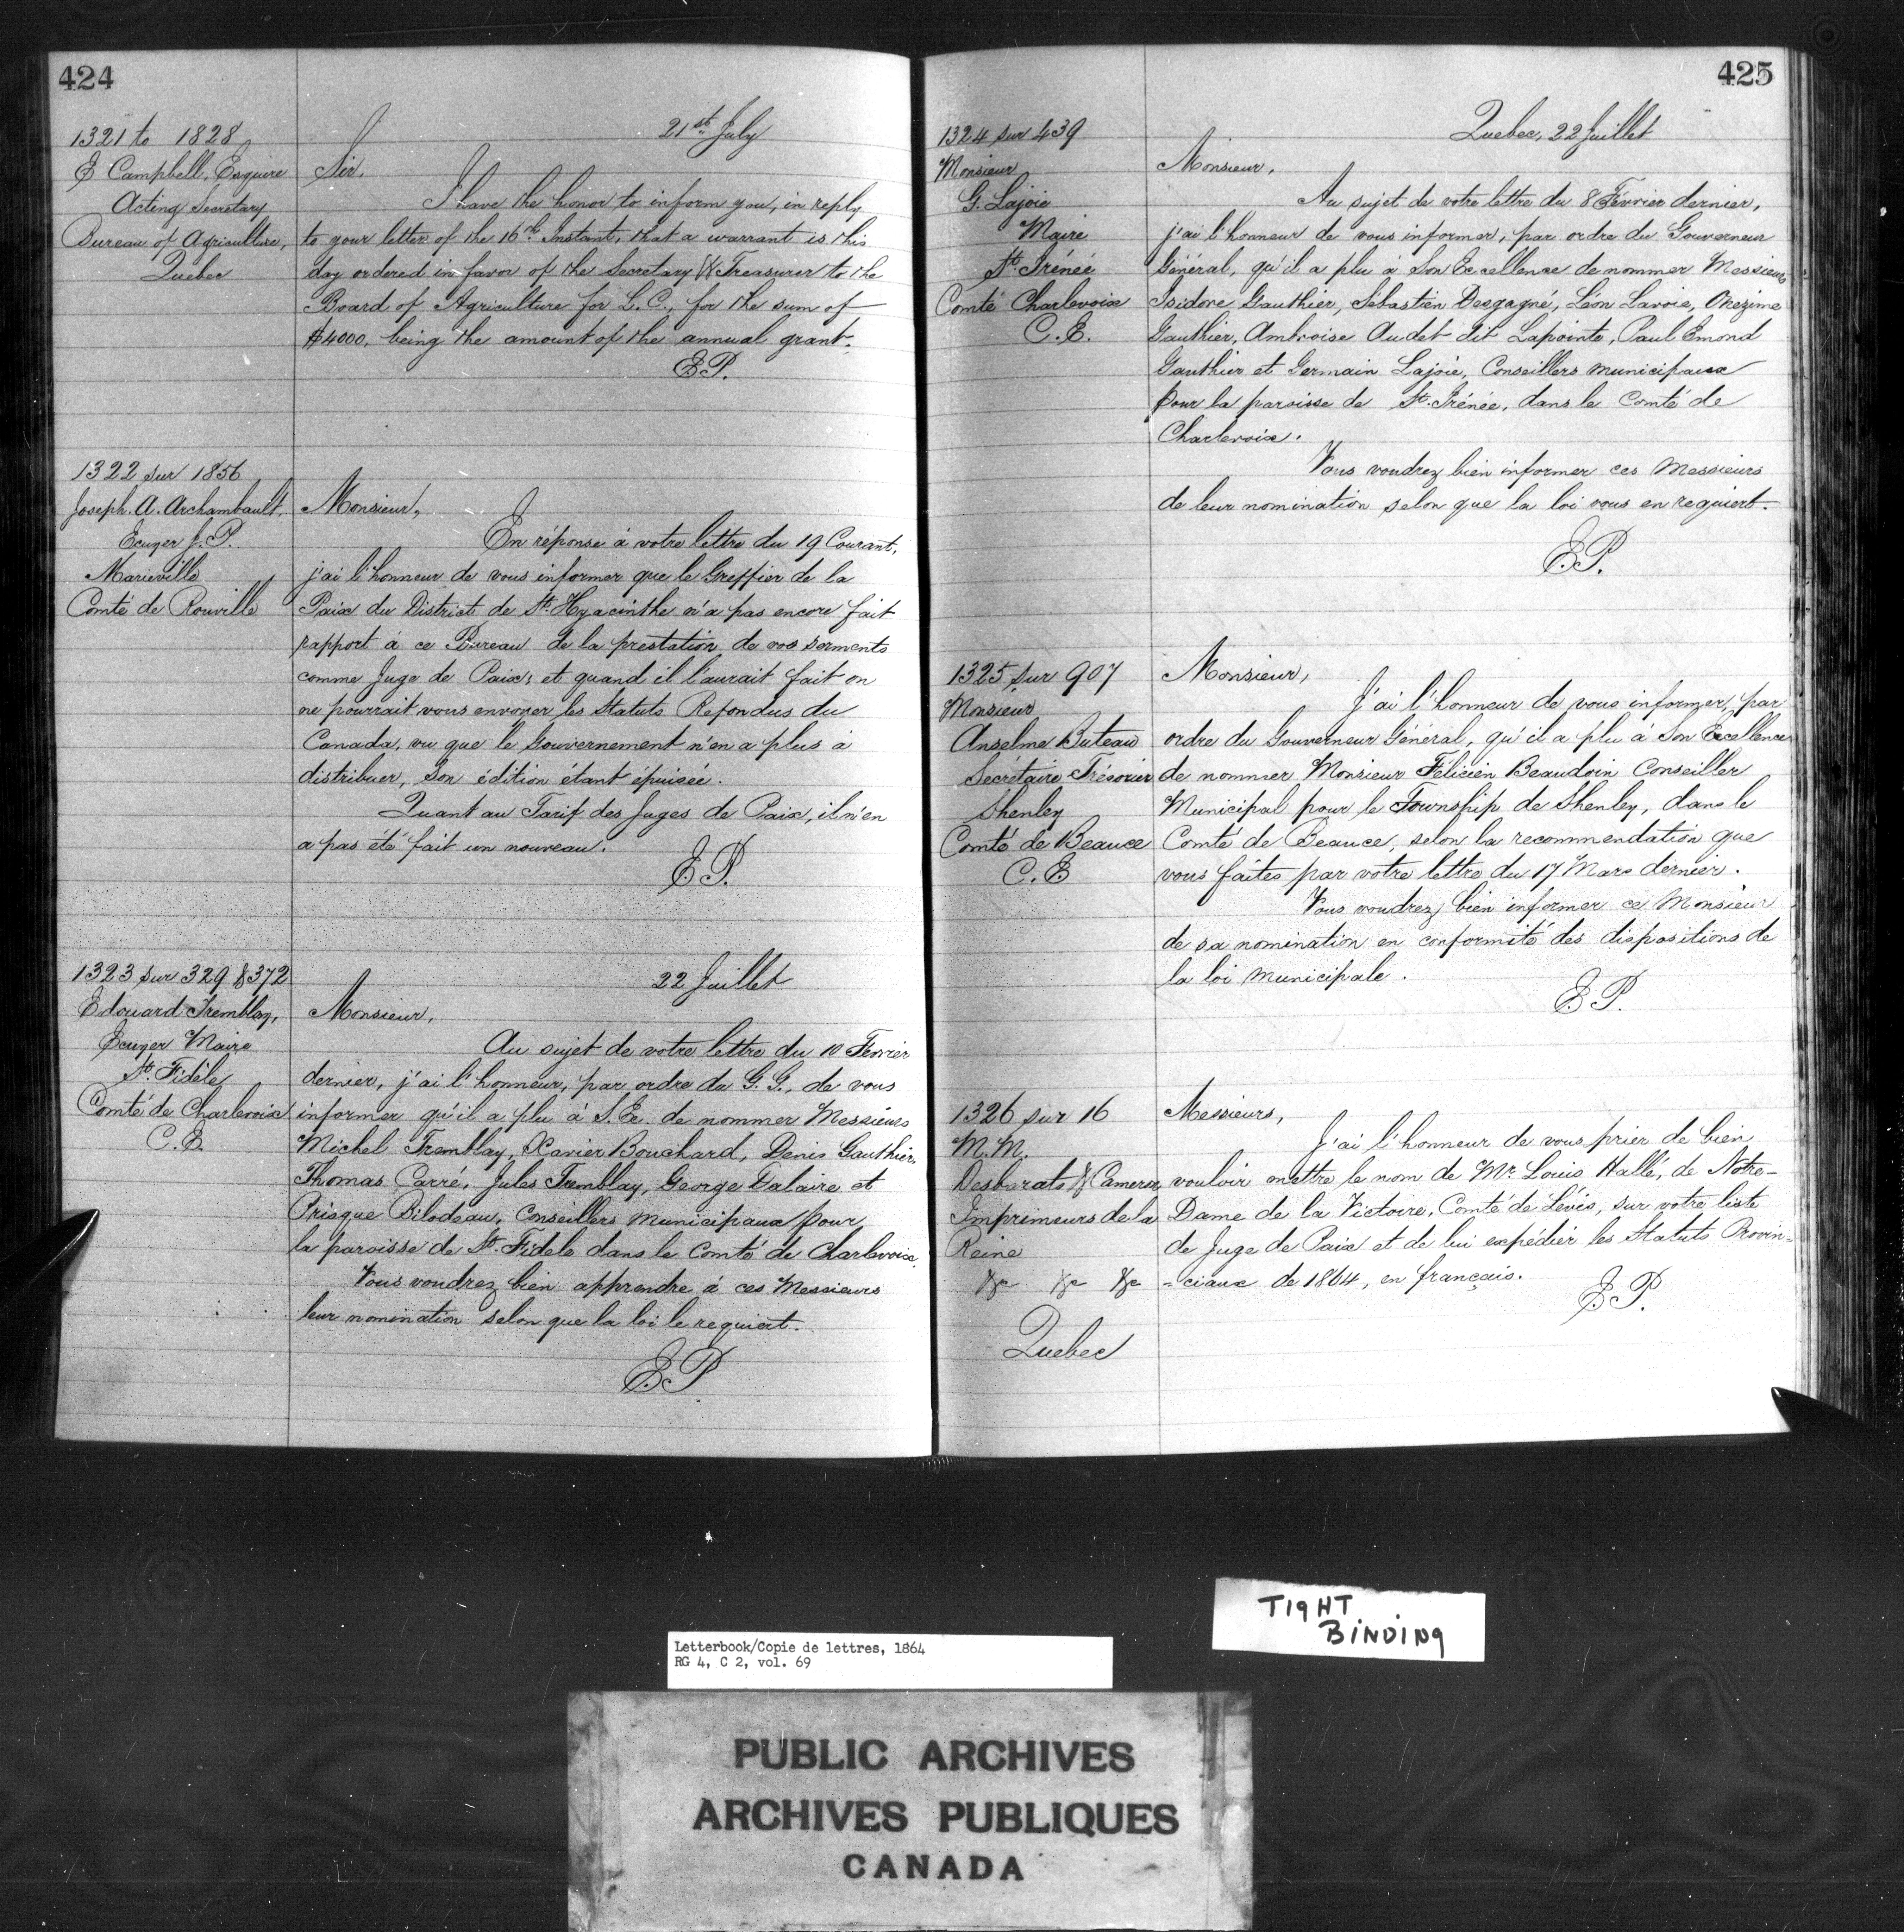 424
1321 to 1828
E Campbell, Esquire
Acting Secretary
Bureau of Agriculture,
Quebec
21st July
Sir,
I have the honor to inform you, in reply
to your letter of the 16th Instant, that a warrant is this
day ordered in favor of the Secretary & Treasurer to the
Board of Agriculture for L.C., for the sum of
$4000, being the amount of the annual grant.
E.P.
1322 sur 1856
Joseph. A. Archambault,
Ecuyer J.P.
Marieville
Comté de Rouville
Monsieur,
En réponse à votre lettre du 19 Courant,
j'ai l'honneur de vous informer que le Greffier de la
Paix du District de St. Hyacinthe n'a pas encore fait
rapport à ce Bureau de la prestation de vos serments
comme Juge de Paix, et quand il l'aurait fait on
ne pourrait vous envoyer les Statuts Refondus du
Canada, vu que le Gouvernement n'en a plus à
distribuer, son édition étant épuisée.
Quant au Tarif des Juges de Paix, il n'en
a pas été fait un nouveau.
E.P.
1323 sur 329 & 372
Edouard Tremblay,
Ecuyer Maire
St. Fidèle
Comté de Charlevoix
C.E.
22 Juillet
Monsieur,
Au sujet de votre lettre du 10 Fevrier
dernier, j'ai l'honneur, par ordre du G.G., de vous
informer qu'il a plu à S.Ex. de nommer Messieurs
Michel Tremblay, Xavier Bouchard, Denis Gauthier,
Thomas Carré, Jules Tremblay, George Dalaire et
Prisque Bilodeau, Conseillers Municipaux pour
la paroisse de St. Fidele dans le Comté de Charlevoix.
Vous voudrez bien apprendre à ces Messieurs
leur nomination selon que la loi le requiert.
E.P
425
1324 sur 439
Monsieur
G. Lajoie
Maire
St. Irénée
Comté Charlevoix
C.E.
Quebec, 22 Juillet
Monsieur,
Au sujet de votre lettre du 8 Février dernier,
j'ai l'honneur de vous informer, par ordre du Gouverneur
Général, qu'il a plu à Son Excellence de nommer Messieurs
Isidore Gauthier, Sébastien Desgagné, Léon Lavoie, Onezime
Gauthier, Ambroise Audet dit Lapointe, Paul Emond
Gauthier et Germain Lajoie, Conseillers municipaux
pour la paroisse de St. Irénée, dans le Comté de
Charlevoix.
Vous voudrez bien informer ces Messieurs
de leur nomination selon que la loi vous en requiert.
E.P.
1325 sur 907
Monsieur
Anselme Buteau
Secrétaire Trésorier
Shenley
Comté de Beauce
C.E
Monsieur,
J'ai l'honneur de vous informer, par
ordre du Gouverneur Général, qu'il a plu à Son Excellence
de nommer Monsieur Félicien Beaudoin Conseiller
Municipal pour le Township de Shenley, dans le
Comté de Beauce, selon la recommendation que
vous faites par votre lettre du 17 Mars dernier.
Vous voudrez bien informer ce Monsieur
de sa nomination en conformité des dispositions de
la loi municipale.
E.P.
1326 sur 16
M.M.
Desbarats & Cameron,
Imprimeurs de la
Reine
&c &c &c
Quebec
Messieurs,
J'ai l'honneur de vous prier de bien
vouloir mettre le nom de Mr. Louis Hallé, de Notre-
Dame de la Victoire, Comté de Lévis, sur votre liste
de Juge de Paix et de lui expédier les Statuts Provin=
=ciaux de 1864, en français.
E.P.
TIGHT
BINDING
Letterbook/Copie de lettres, 1864
RG 4, C 2, vol. 69
PUBLIC ARCHIVES
ARCHIVES PUBLIQUES
CANADA